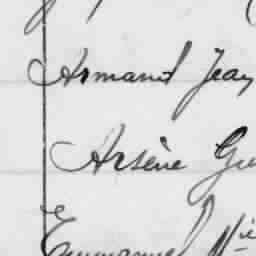 Armand Jean
Arsène Gu
Emmanuel Nie